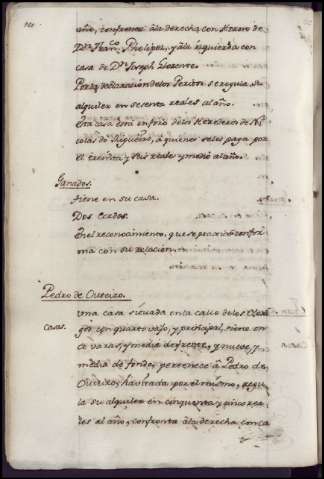 año, confronta âla derecha con Herno de
Dn. Franco. Phelipez, y âla izquierda con
casa de Dn. Joseph Llorente.
Por la declaracion de los Peritos se regula su
alquiler en sesenta reales al año.
Esta casa está en foro de los Herederos de Ni
colas do Sigueiro, â quienes se les paga por
el treinta, y seis reales y medio al año.
Ganados.
tiene en su casa.
Dos Cerdos.
En el reconocimiento, que se practicó confir
ma con su relacion.
Pedro de Outeiro.
Casas.
Una casa situada en la calle de los Clerigos
con quarto vajo, y principal, tiene on
ce varas, y media de frente, y nueve, y
media de fondo, pertenece â Pedro de
Outeiro, havitada por el mismo, regu
la su alquiler en cinquenta y cinco rea
les al año, confronta âla derecha con ca